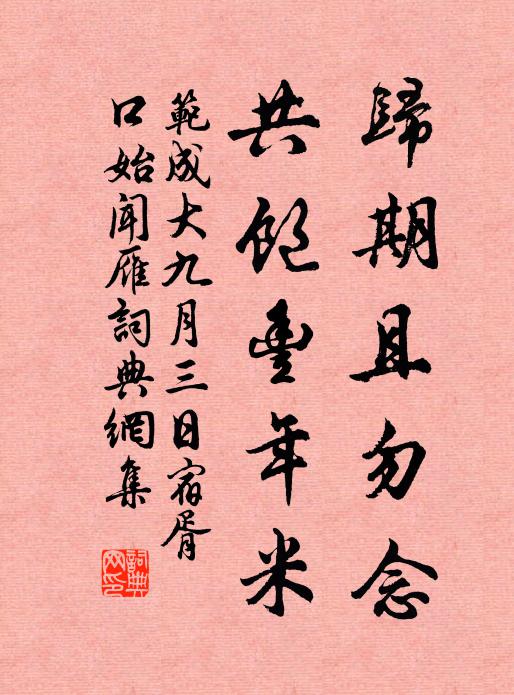 歸期且勿念
共飽豐年米
範成大九月三日宿胥
口始聞雁詞典網集
詞典
网印